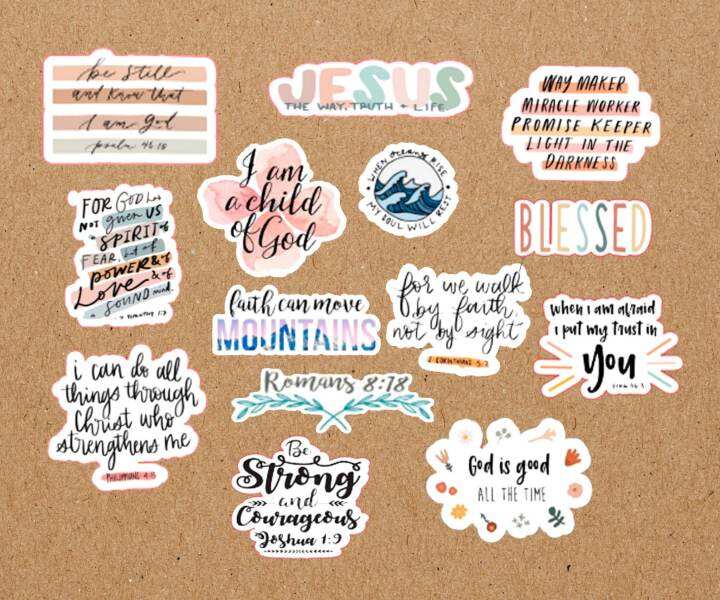 be still
and know that
I am God
psalm 46:10
JESUS
THE WAY, TRUTH + LIFE
WAY MAKER
MIRACLE WORKER
PROMISE KEEPER
LIGHT IN THE
DARKNESS
I am
a child
of God
WHEN OCEANS RISE
MY SOUL WILL REST
FOR GOD has
NOT given US
a SPIRIT of
FEAR, but of
POWER & of
Love & of
a SOUND mind.
2 TIMOTHY 1:7
BLESSED
faith can move
MOUNTAINS
for we walk
by faith,
not by sight
2 CORINTHIANS 5:7
When I am afraid
I put my trust in
You
PSALM 56:3
i can do all
things through
Christ who
strengthens me
PHILIPPIANS 4:13
Romans 8:18
Be
Strong
and
Courageous
Joshua 1:9
God is good
ALL THE TIME